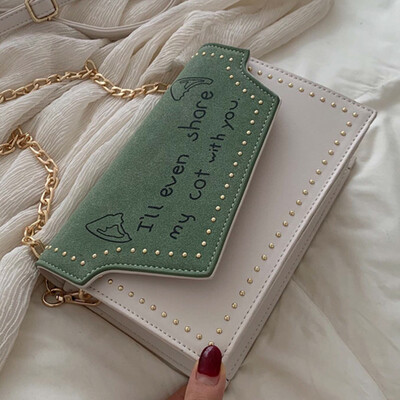 I'll even share
my cat with you.